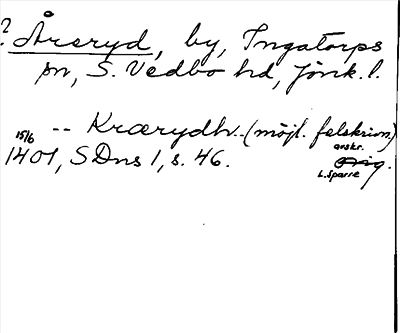 ? Åreryd, by, Ingatorps
sn, S. Vedbo hd, Jönk. l.
-- Krærydh.. (möjl. felskrivn.)
15/6 1401, SDns 1, s. 46. avskr. Orig.
L. Sparre